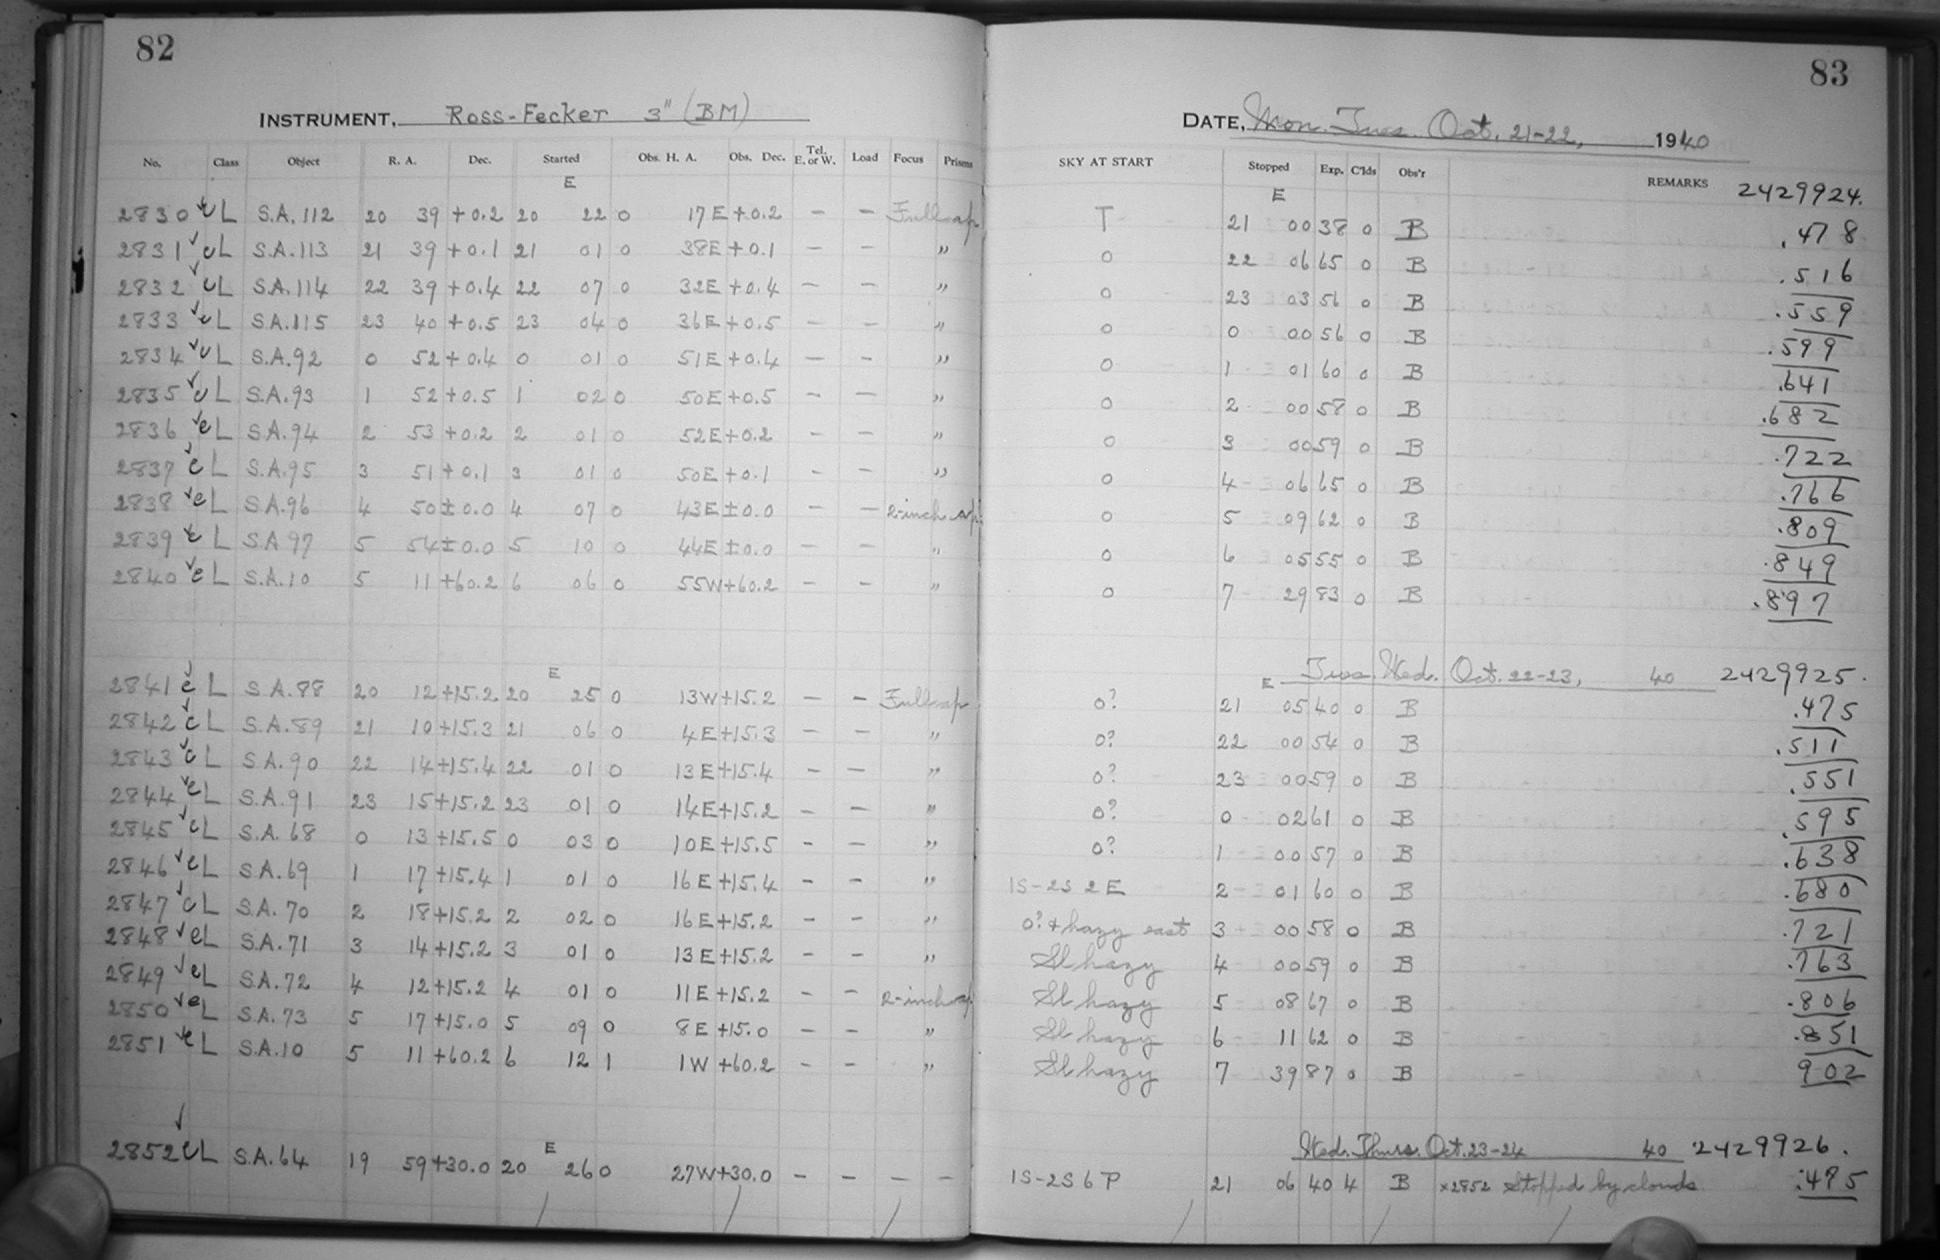 82
INSTRUMENT, Ross-Fecker 3" (BM)
No. Class Object R. A. Dec. Started Obs. H. A. Obs. Dec. Tel. E. or W. Load Focus Prisms
E
2830 L S.A. 112 20 39 +0.2 20 22 0 17E +0.2 — — Full cap
2831 L S.A. 113 21 39 +0.1 21 01 0 38E +0.1 — — "
2832 L S.A. 114 22 39 +0.4 22 07 0 32E +0.4 — — "
2833 L S.A. 115 23 40 +0.5 23 04 0 36E +0.5 — — "
2834 L S.A. 92 0 52 +0.4 0 01 0 51E +0.4 — — "
2835 L S.A. 93 1 52 +0.5 1 02 0 50E +0.5 — — "
2836 eL S.A. 94 2 53 +0.2 2 01 0 52E +0.2 — — "
2837 eL S.A. 95 3 51 +0.1 3 01 0 50E +0.1 — — "
2838 eL S.A. 96 4 50 ±0.0 4 07 0 43E ±0.0 — — 2-inch ap.
2839 L S.A. 97 5 54 ±0.0 5 10 0 44E ±0.0 — — "
2840 eL S.A. 10 5 11 +60.2 6 06 0 55W +60.2 — — "
E
2841 eL S.A. 88 20 12 +15.2 20 25 0 13W +15.2 — — Full ap
2842 L S.A. 89 21 10 +15.3 21 06 0 4E +15.3 — — "
2843 L S.A. 90 22 14 +15.4 22 01 0 13E +15.4 — — "
2844 eL S.A. 91 23 15 +15.2 23 01 0 14E +15.2 — — "
2845 L S.A. 68 0 13 +15.5 0 03 0 10E +15.5 — — "
2846 eL S.A. 69 1 17 +15.4 1 01 0 16E +15.4 — — "
2847 L S.A. 70 2 18 +15.2 2 02 0 16E +15.2 — — "
2848 eL S.A. 71 3 14 +15.2 3 01 0 13E +15.2 — — "
2849 eL S.A. 72 4 12 +15.2 4 01 0 11E +15.2 — — 2-inch ap.
2850 eL S.A. 73 5 17 +15.0 5 09 0 8E +15.0 — — "
2851 eL S.A. 10 5 11 +60.2 6 12 1 1W +60.2 — — "
E
2852 L S.A. 64 19 59 +30.0 20 26 0 27W +30.0 — — — —
83
DATE, Mon. Tues. Oct. 21-22, 1940
SKY AT START Stopped Exp. C'lds Obs'r REMARKS 2429924.
E
T 21 00 38 0 B .478
0 22 06 65 0 B .516
0 23 03 56 0 B .559
0 0 00 56 0 B .599
0 1 01 60 0 B .641
0 2 00 58 0 B .682
0 3 00 59 0 B .722
0 4 06 65 0 B .766
0 5 09 62 0 B .809
0 6 05 55 0 B .849
0 7 29 83 0 B .897
E Tues. Wed. Oct. 22-23, 40 2429925.
0? 21 05 40 0 B .475
0? 22 00 54 0 B .511
0? 23 00 59 0 B .551
0? 0 02 61 0 B .595
0? 1 00 57 0 B .638
1S-2S 2E 2 01 60 0 B .680
0? + hazy east 3 00 58 0 B .721
Sl hazy 4 00 59 0 B .763
Sl hazy 5 08 67 0 B .806
Sl hazy 6 11 62 0 B .851
Sl hazy 7 39 87 0 B 902
Wed. Thurs. Oct. 23-24 40 2429926.
1S-2S 6P 21 06 40 4 B x2852 Stopped by clouds .475